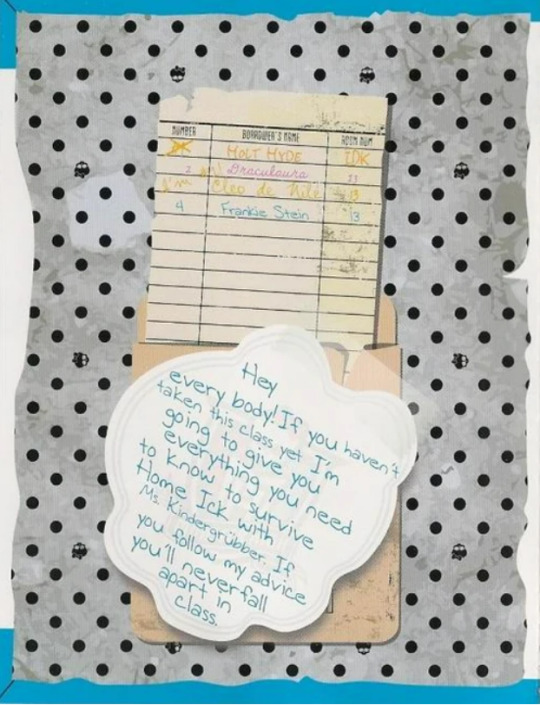 NUMBER BORROWER'S NAME ROOM NUM
HOLT HYDE IDK
2 Draculaura 13
Cleo de Nile 13
4 Frankie Stein 13
Hey
every body! If you haven't
taken this class yet I'm
going to give you
everything you need
to know to survive
Home Ick with
Ms. Kindergrübber. If
you follow my advice
you'll never fall
apart in
class.